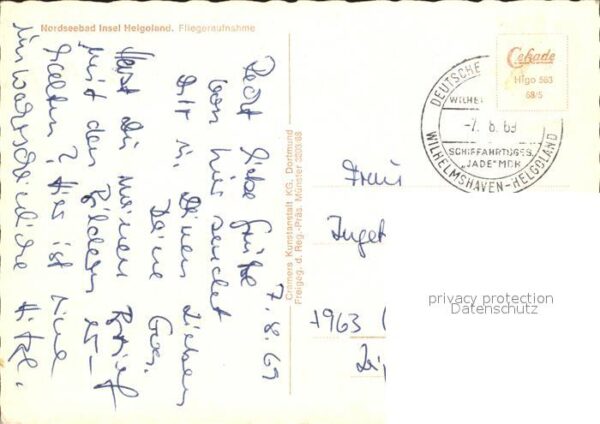 Nordseebad Insel Helgoland. Fliegeraufnahme
7.8.69
Recht liebe Grüße
von hier sendet
Dir u. Deinen Lieben
Deine
Hast Du meinen Brief
mit den Bildern
erhalten? Hier ist eine
unwahrscheinliche Hitze.
Cramers Kunstanstalt KG., Dortmund
Freigeg. d. Reg.-Präs. Münster
Cekade
Hlgo 583
68/5
DEUTSCHE
WILHE
-7. 8. 69
SCHIFFAHRTSGES.
"JADE" MCH
WILHELMSHAVEN-HELGOLAND
Inget
1963
privacy protection
Datenschutz